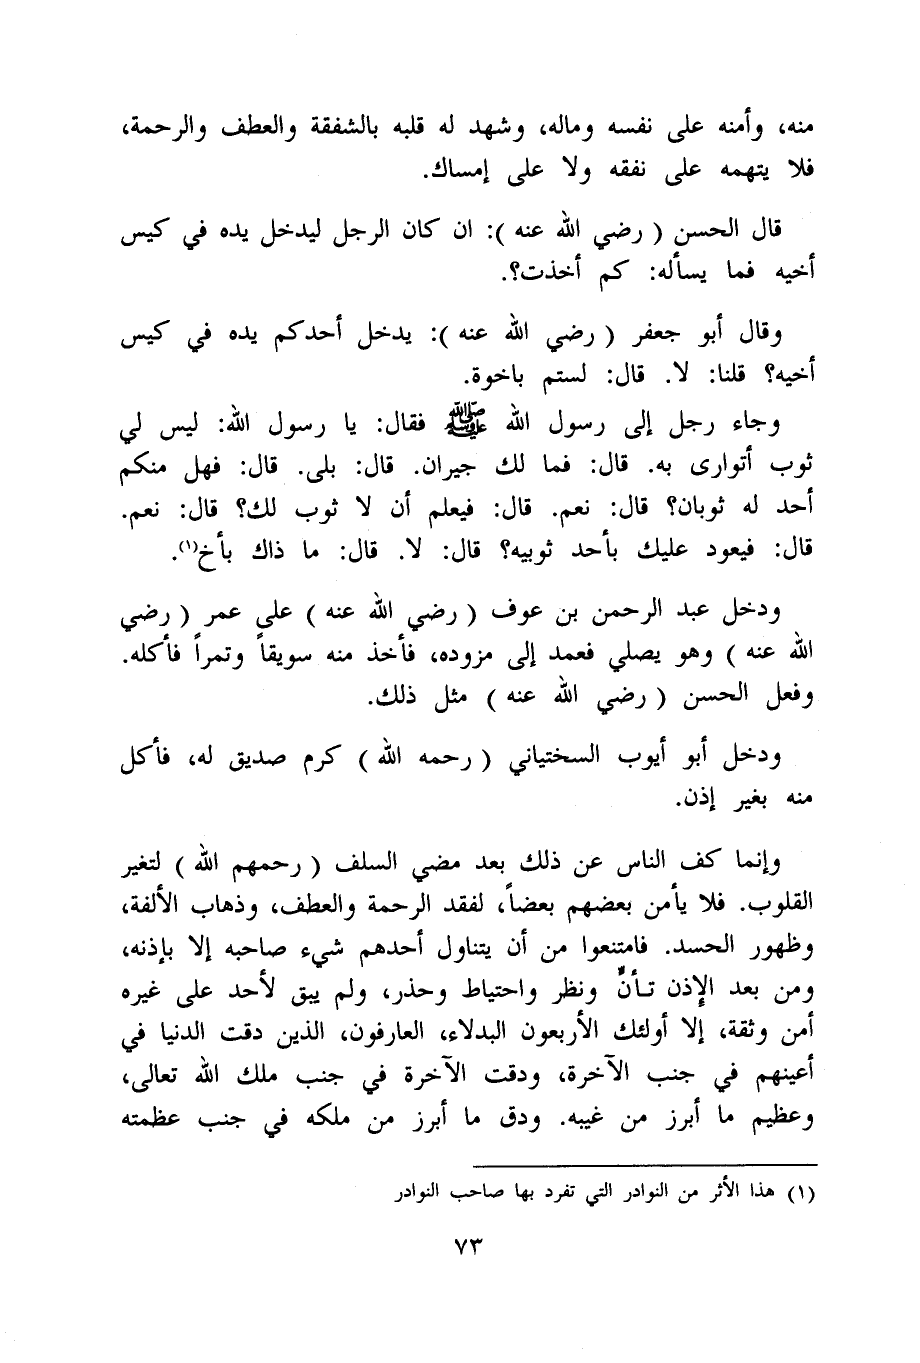 منه، وأمنه على نفسه وماله، وشهد له قلبه بالشفقة والعطف والرحمة،
فلا يتهمه على نفقه ولا على إمساك.
قال الحسن ( رضي الله عنه ): ان كان الرجل ليدخل يده في كيس
أخيه فما يسأله: كم أخذت؟.
وقال أبو جعفر ( رضي الله عنه ): يدخل أحدكم يده في كيس
أخيه؟ قلنا: لا. قال: لستم باخوة.
وجاء رجل إلى رسول الله ﷺ فقال: يا رسول الله: ليس لي
ثوب أتوارى به. قال: فما لك جيران. قال: بلى. قال: فهل منكم
أحد له ثوبان؟ قال: نعم. قال: فيعلم أن لا ثوب لك؟ قال: نعم.
قال: فيعود عليك بأحد ثوبيه؟ قال: لا. قال: ما ذاك بأخ(١).
ودخل عبد الرحمن بن عوف ( رضي الله عنه ) على عمر ( رضي
الله عنه ) وهو يصلي فعمد إلى مزوده، فأخذ منه سويقاً وتمراً فأكله.
وفعل الحسن ( رضي الله عنه ) مثل ذلك.
ودخل أبو أيوب السختياني ( رحمه الله ) كرم صديق له، فأكل
منه بغير إذن.
وإنما كف الناس عن ذلك بعد مضي السلف ( رحمهم الله ) لتغير
القلوب. فلا يأمن بعضهم بعضاً، لفقد الرحمة والعطف، وذهاب الألفة،
وظهور الحسد. فامتنعوا من أن يتناول أحدهم شيء صاحبه إلا بإذنه،
ومن بعد الإذن تـأنٌّ ونظر واحتياط وحذر، ولم يبق لأحد على غيره
أمن وثقة، إلا أولئك الأربعون البدلاء، العارفون، الذين دقت الدنيا في
أعينهم في جنب الآخرة، ودقت الآخرة في جنب ملك الله تعالى،
وعظيم ما أبرز من غيبه. ودق ما أبرز من ملكه في جنب عظمته
(١) هذا الأثر من النوادر التي تفرد بها صاحب النوادر
٧٣